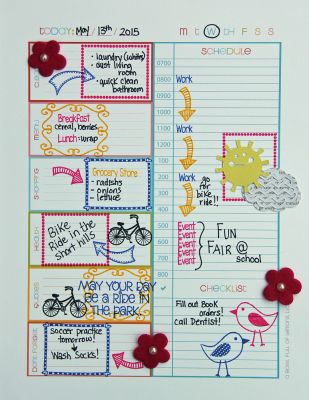 TODAY: May / 13th / 2015
m t w th F S S
clean
• laundry (white)
• dust living
room
• quick clean
bathroom
menu
Breakfast
cereal, berries
Lunch: wrap
shopping
Grocery Store
- radishs
- onions
- lettuce
health
Bike
Ride in the
short hills
quotes
MAY YOUR DAY
BE A RIDE IN
THE PARK
Don't Forget
Soccer practice
tomorrow!
Wash Socks!
SCHEDULE
0700
Work
800
900
1000
1100
Work
1200
100
200
Work
go
for
bike
ride!!
300
400
500
Event
Event
Event
Event
FUN
FAIR @
school
600
700
800
CHECKLIST
Fill out Book
orders!
call Dentist!